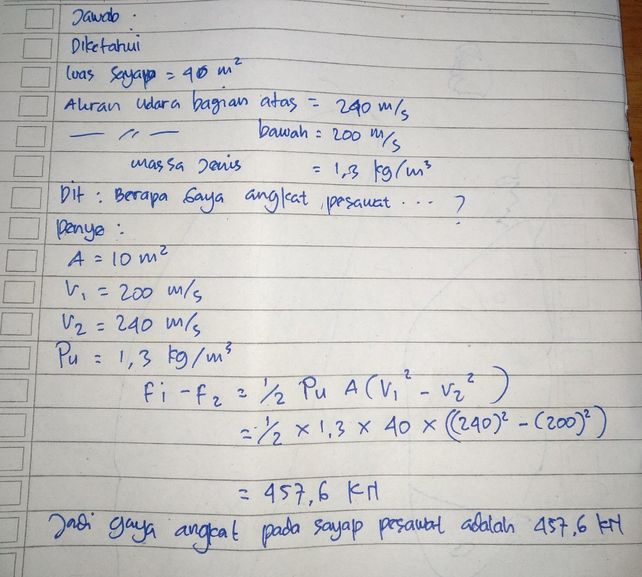 Jawab :
Diketahui
luas sayap = 40 m²
Aliran udara bagian atas = 240 m/s
— // — bawah = 200 m/s
massa Jenis = 1,3 kg/m³
Dit : Berapa Gaya angkat pesawat ... ?
penye :
A = 10 m²
V₁ = 200 m/s
V₂ = 240 m/s
Pu = 1,3 kg/m³
Fi - F₂ = 1/2 Pu A (V₁² - V₂²)
= 1/2 × 1,3 × 40 × ((240)² - (200)²)
= 457,6 KN
Jadi gaya angkat pada sayap pesawat adalah 457,6 KN